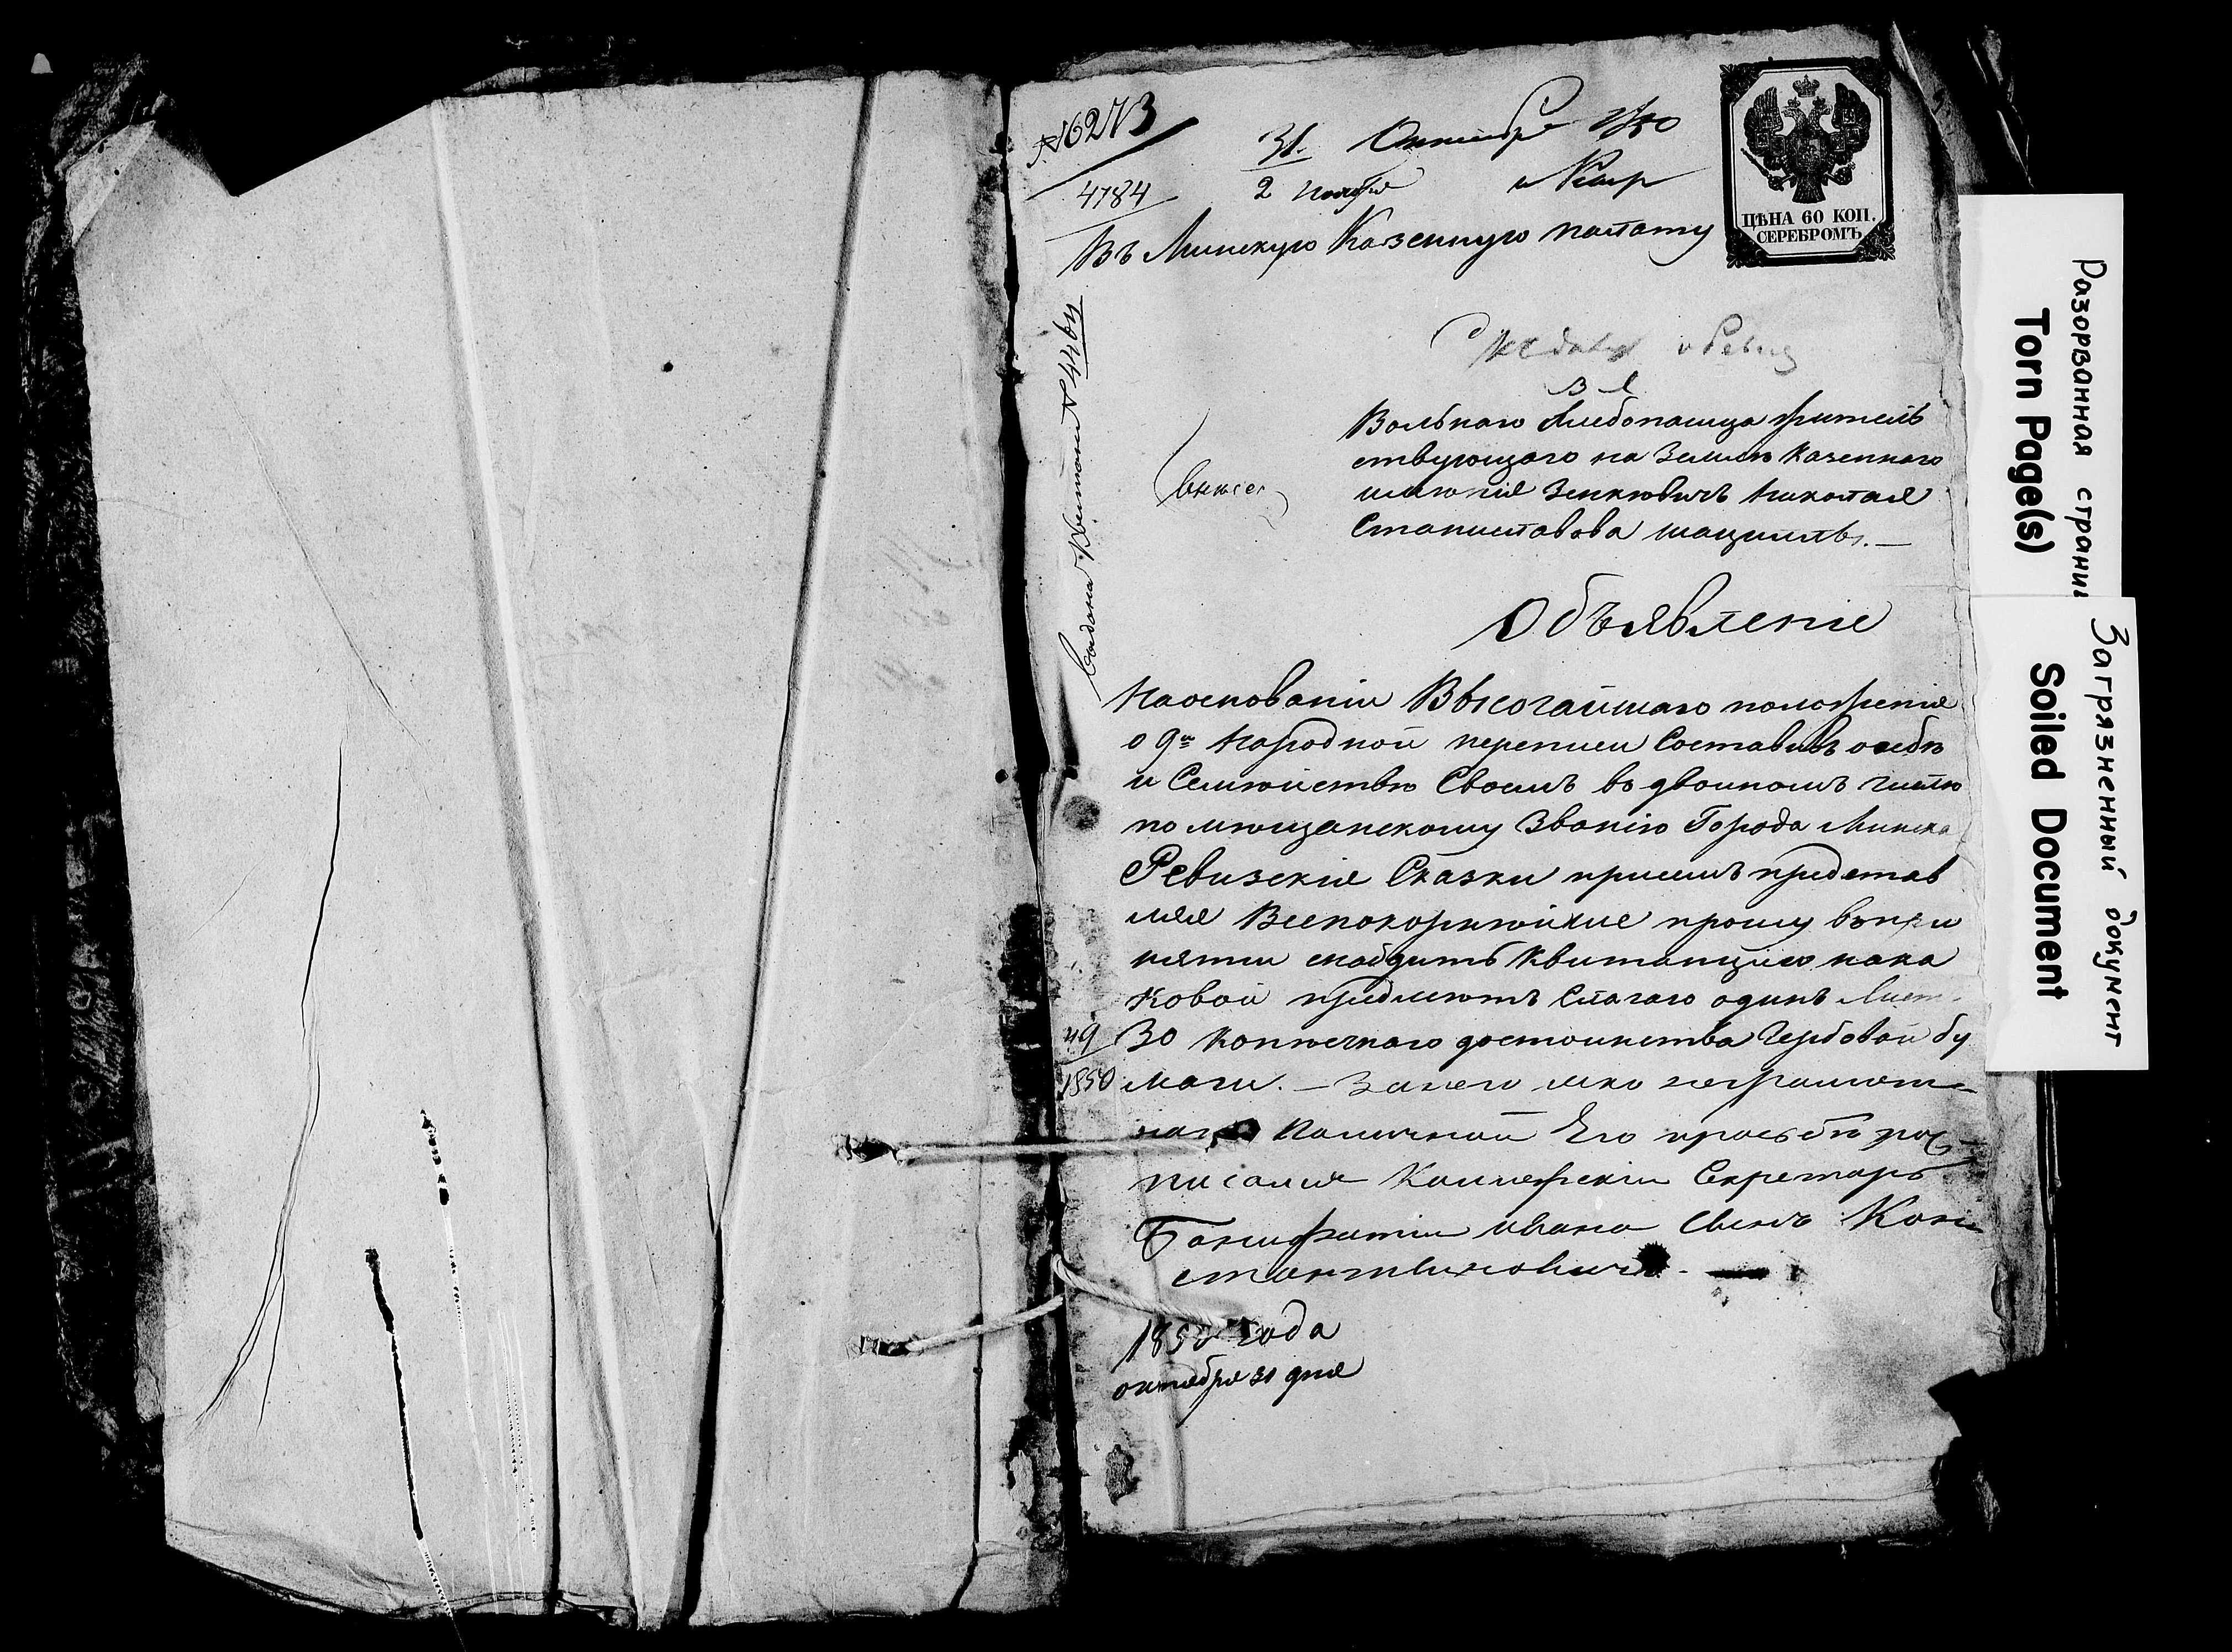 № 6273
31 Октября 1850
4784
2 Ноября
ЦѢНА 60 КОП.
СЕРЕБРОМЪ
Въ Минскую Казенную палату
Выдана Квитанція №
Вольнаго Хлебопашца жритель
ствующаго на Землѣ Казеннаго
имѣнія Зенковичъ Николая
Станиславова
Объявленіе
На основаніи Высочайшаго положенія
о 9й Народной переписи Составивъ о себѣ
и Семѣйствѣ Своемъ въ двойномъ числѣ
по мѣщанскому Званію Города Минска
Ревизскія Сказки при семъ представ
ляя Всепокорнѣйше прошу въ при
нятіи снабдить Квитанціею кака
ковой предметъ Слагаю одинъ Лист
49
30 копѣечнаго достоинства Гербовой бу
1850
маги. — За него яко неграмот
наго Поличной Его прозьбѣ рос
писался Коллежскій Секретарь
Бонифатій Ивана Сынъ Кон
стантиновичъ. —
1850 года
октября 31 дня
Разорванная страни
Torn Page(s)
Загрязненный документ
Soiled Document